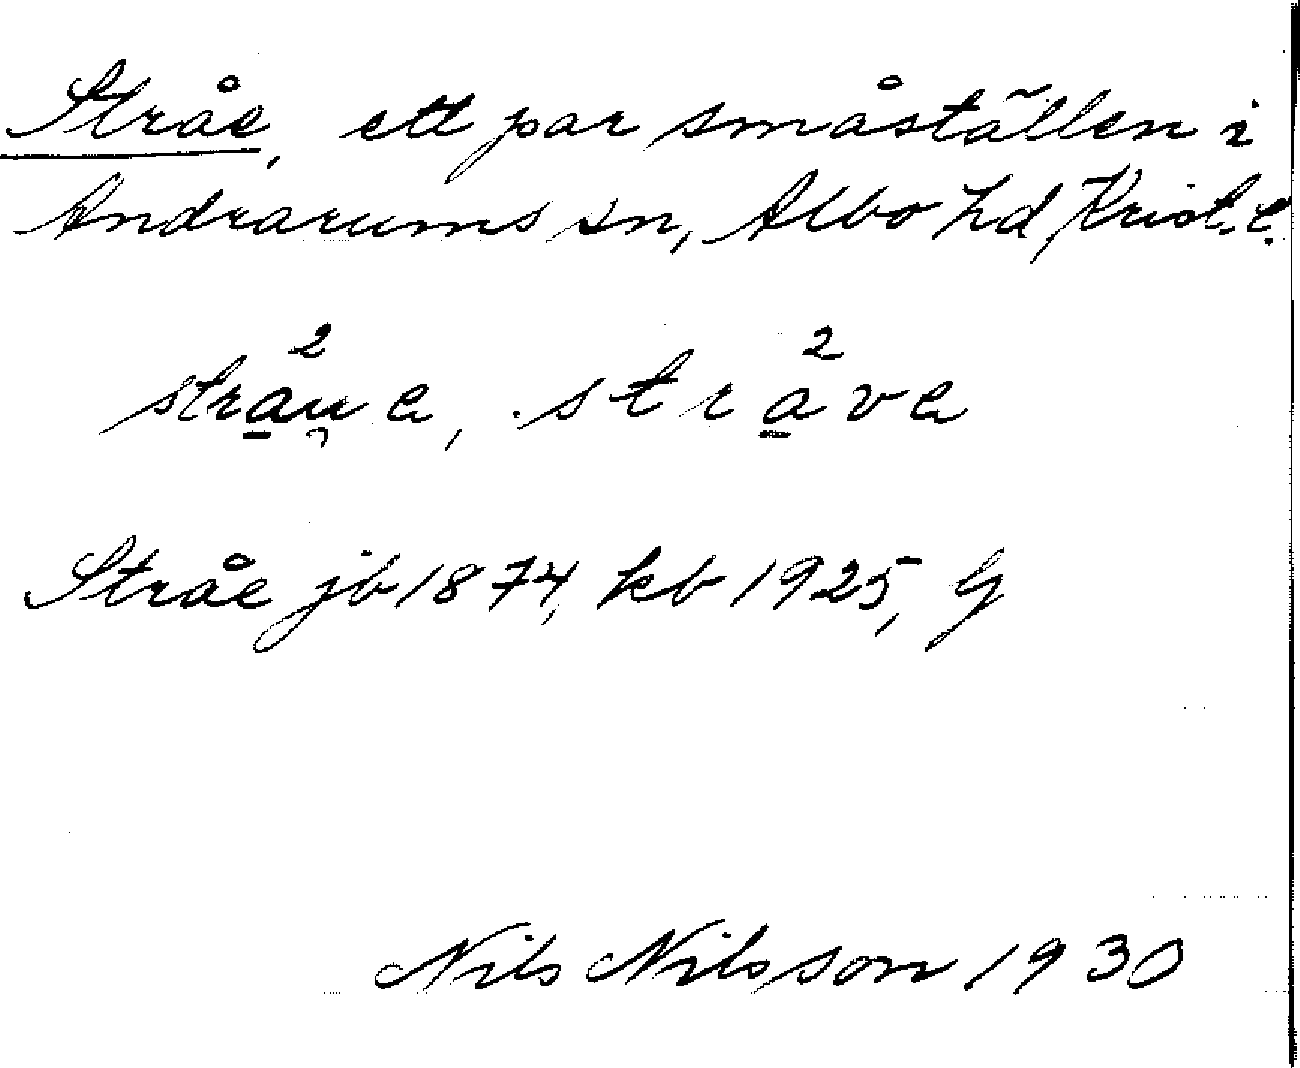 Stråe, ett par småställen i
Andrarums sn, Albo hd, Krist. l.
stra²u̯a, stra²va
Stråe jb 1874, kb 1925, G
Nils Nilsson 1930